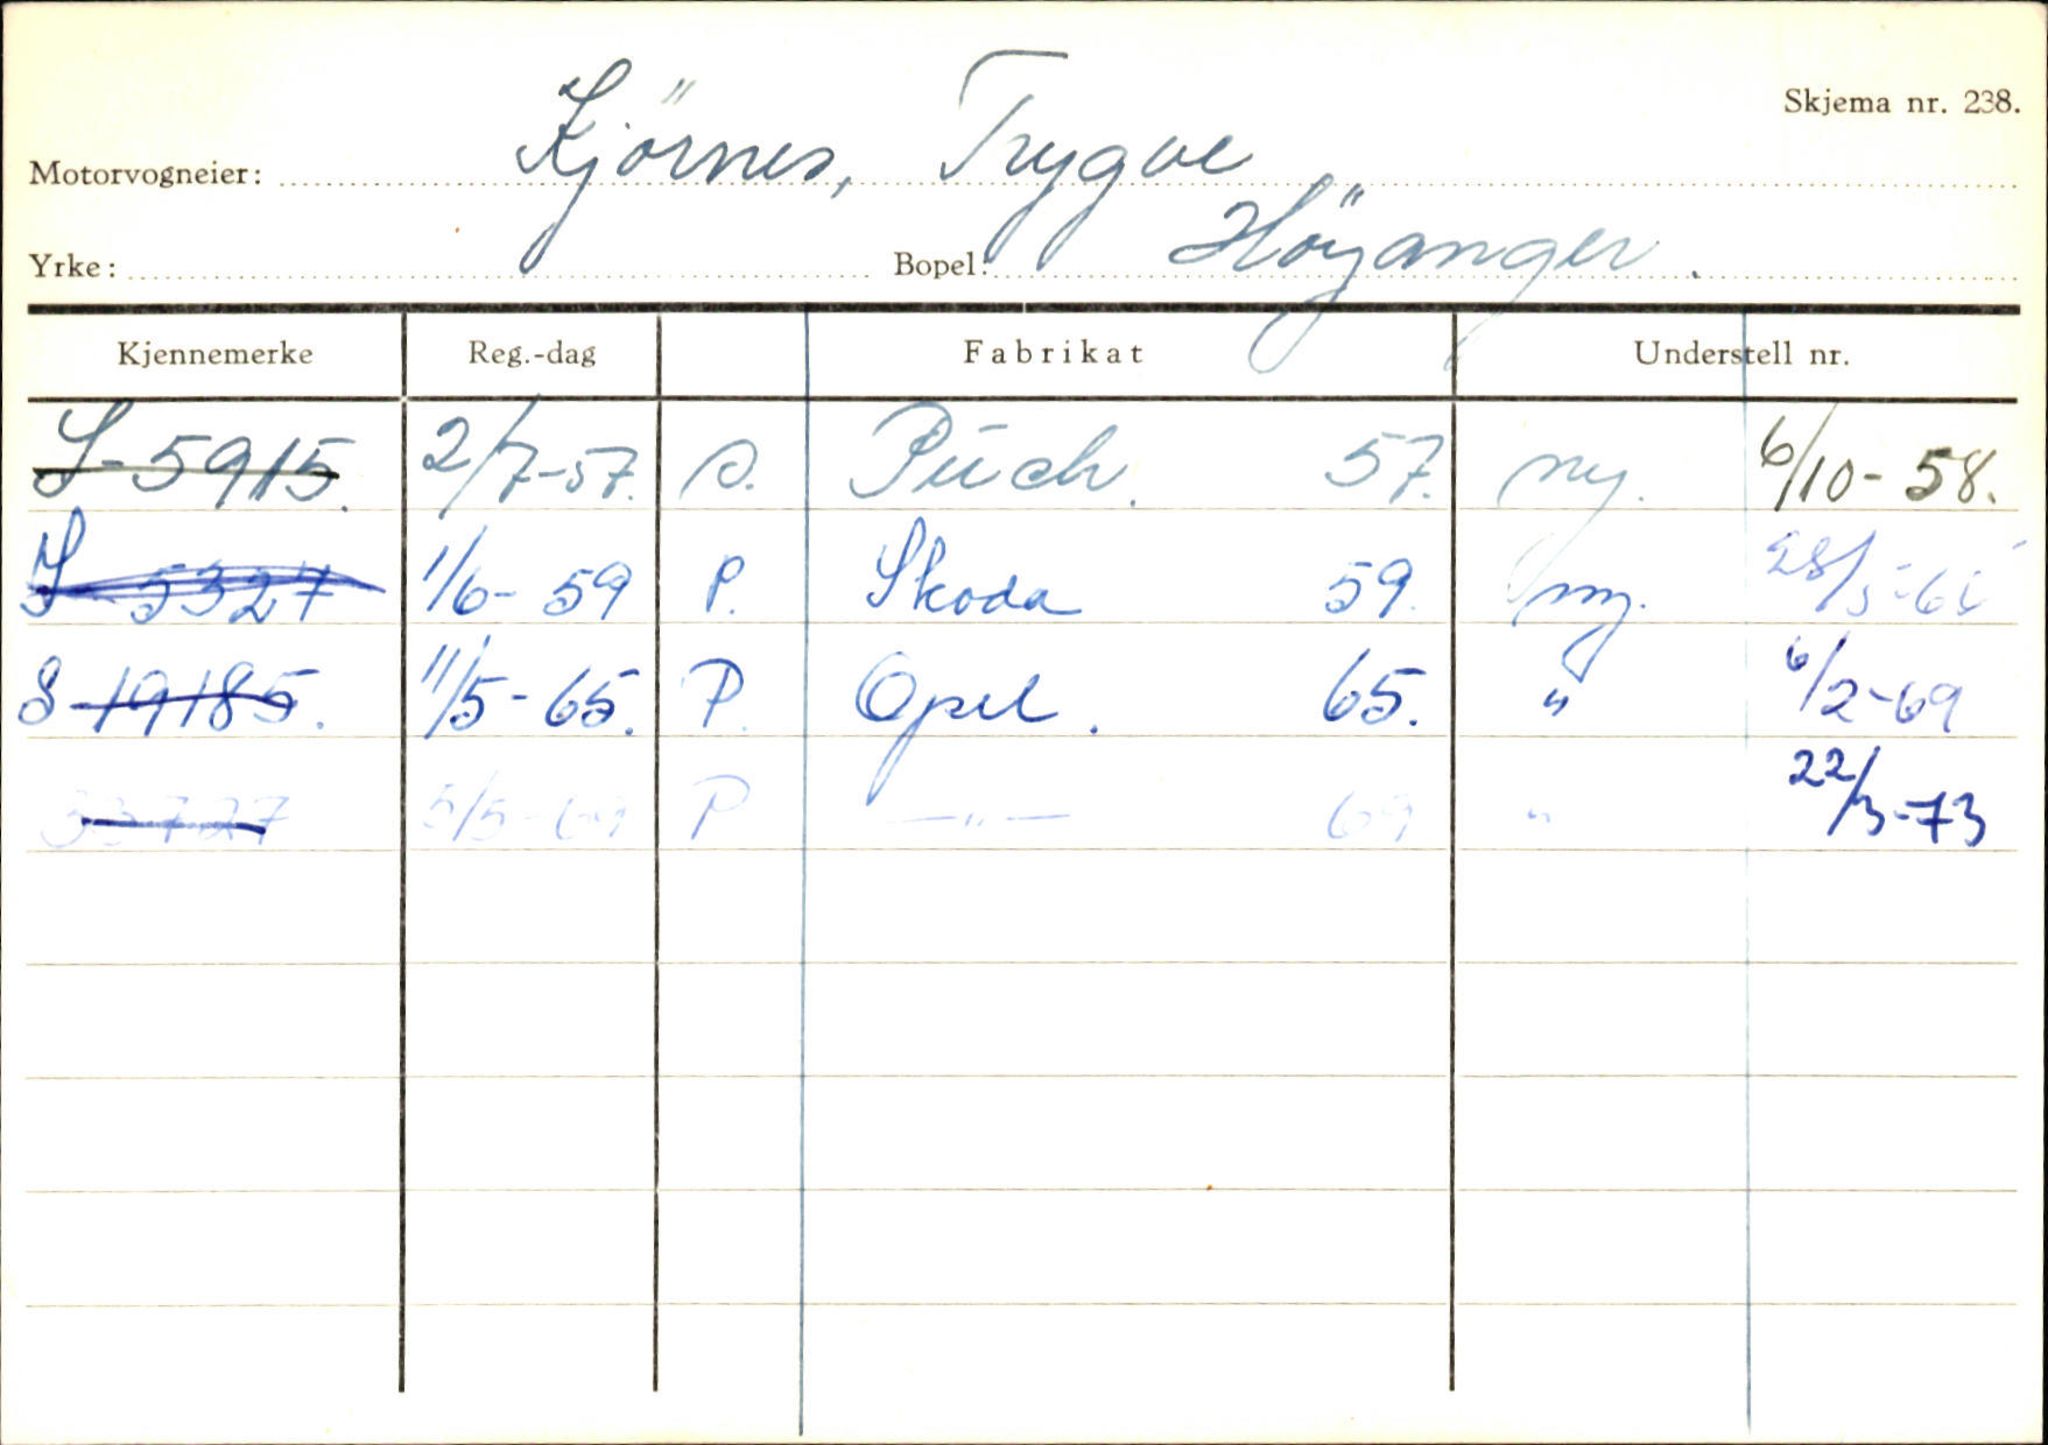 Skjema nr. 238.
Motorvogneier: Kjörnes, Trygve
Yrke: Bopel: Höyanger.
Kjennemerke Reg.-dag Fabrikat Understell nr.
S-5915. 2/7-57. S. Püch. 57. ny. 6/10-58.
S-5327 1/6-59 P. Skoda 59. ny. 28/5-65
S-19185. 11/5-65. P. Opel. 65. " 6/2-69
33727 5/5-69 P —"— 69 " 22/3-73